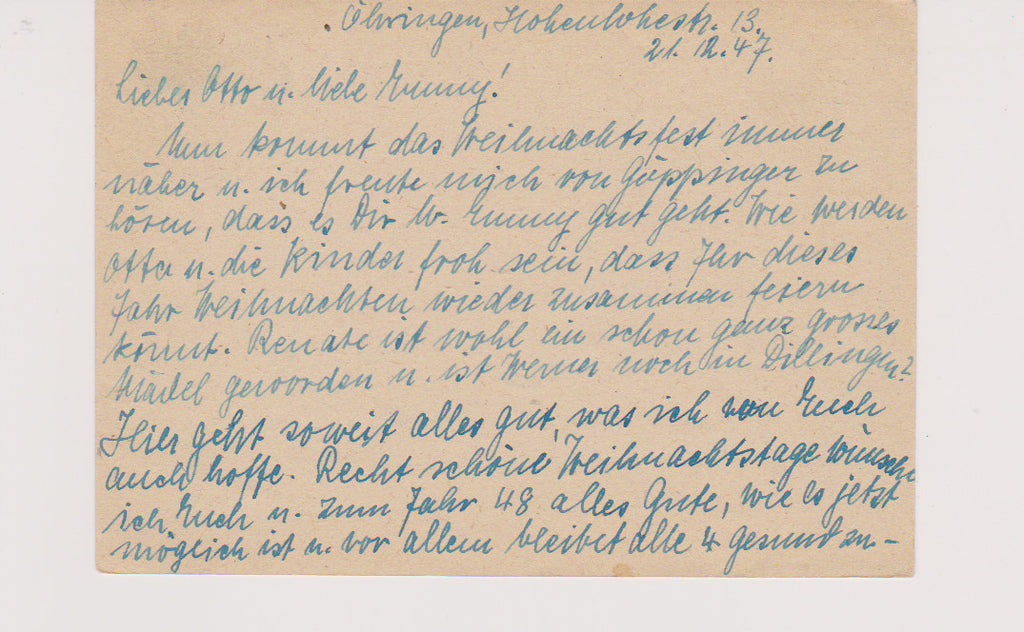 Öhringen, Hohenlohestr. 13.
21. 12. 47.
Liebes Otto u. liebe Emmy!
Nun kommt das Weihnachtsfest immer
näher u. ich freute mich von Göppinger zu
hören, dass es Dir lb. Emmy gut geht. Wie werden
Otto u. die Kinder froh sein, dass Ihr dieses
Jahr Weihnachten wieder zusammen feiern
könnt. Renate ist wohl ein schon ganz grosses
Mädel geworden u. ist Werner noch in Dillingen?
Hier geht soweit alles gut, was ich von Euch
auch hoffe. Recht schöne Weihnachtstage wünsche
ich Euch u. zum Jahr 48 alles Gute, wie es jetzt
möglich ist u. vor allem bleibet alle 4 gesund zu-